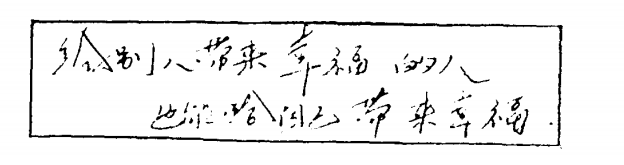 给别人带来幸福的人
也能给自己带来幸福.